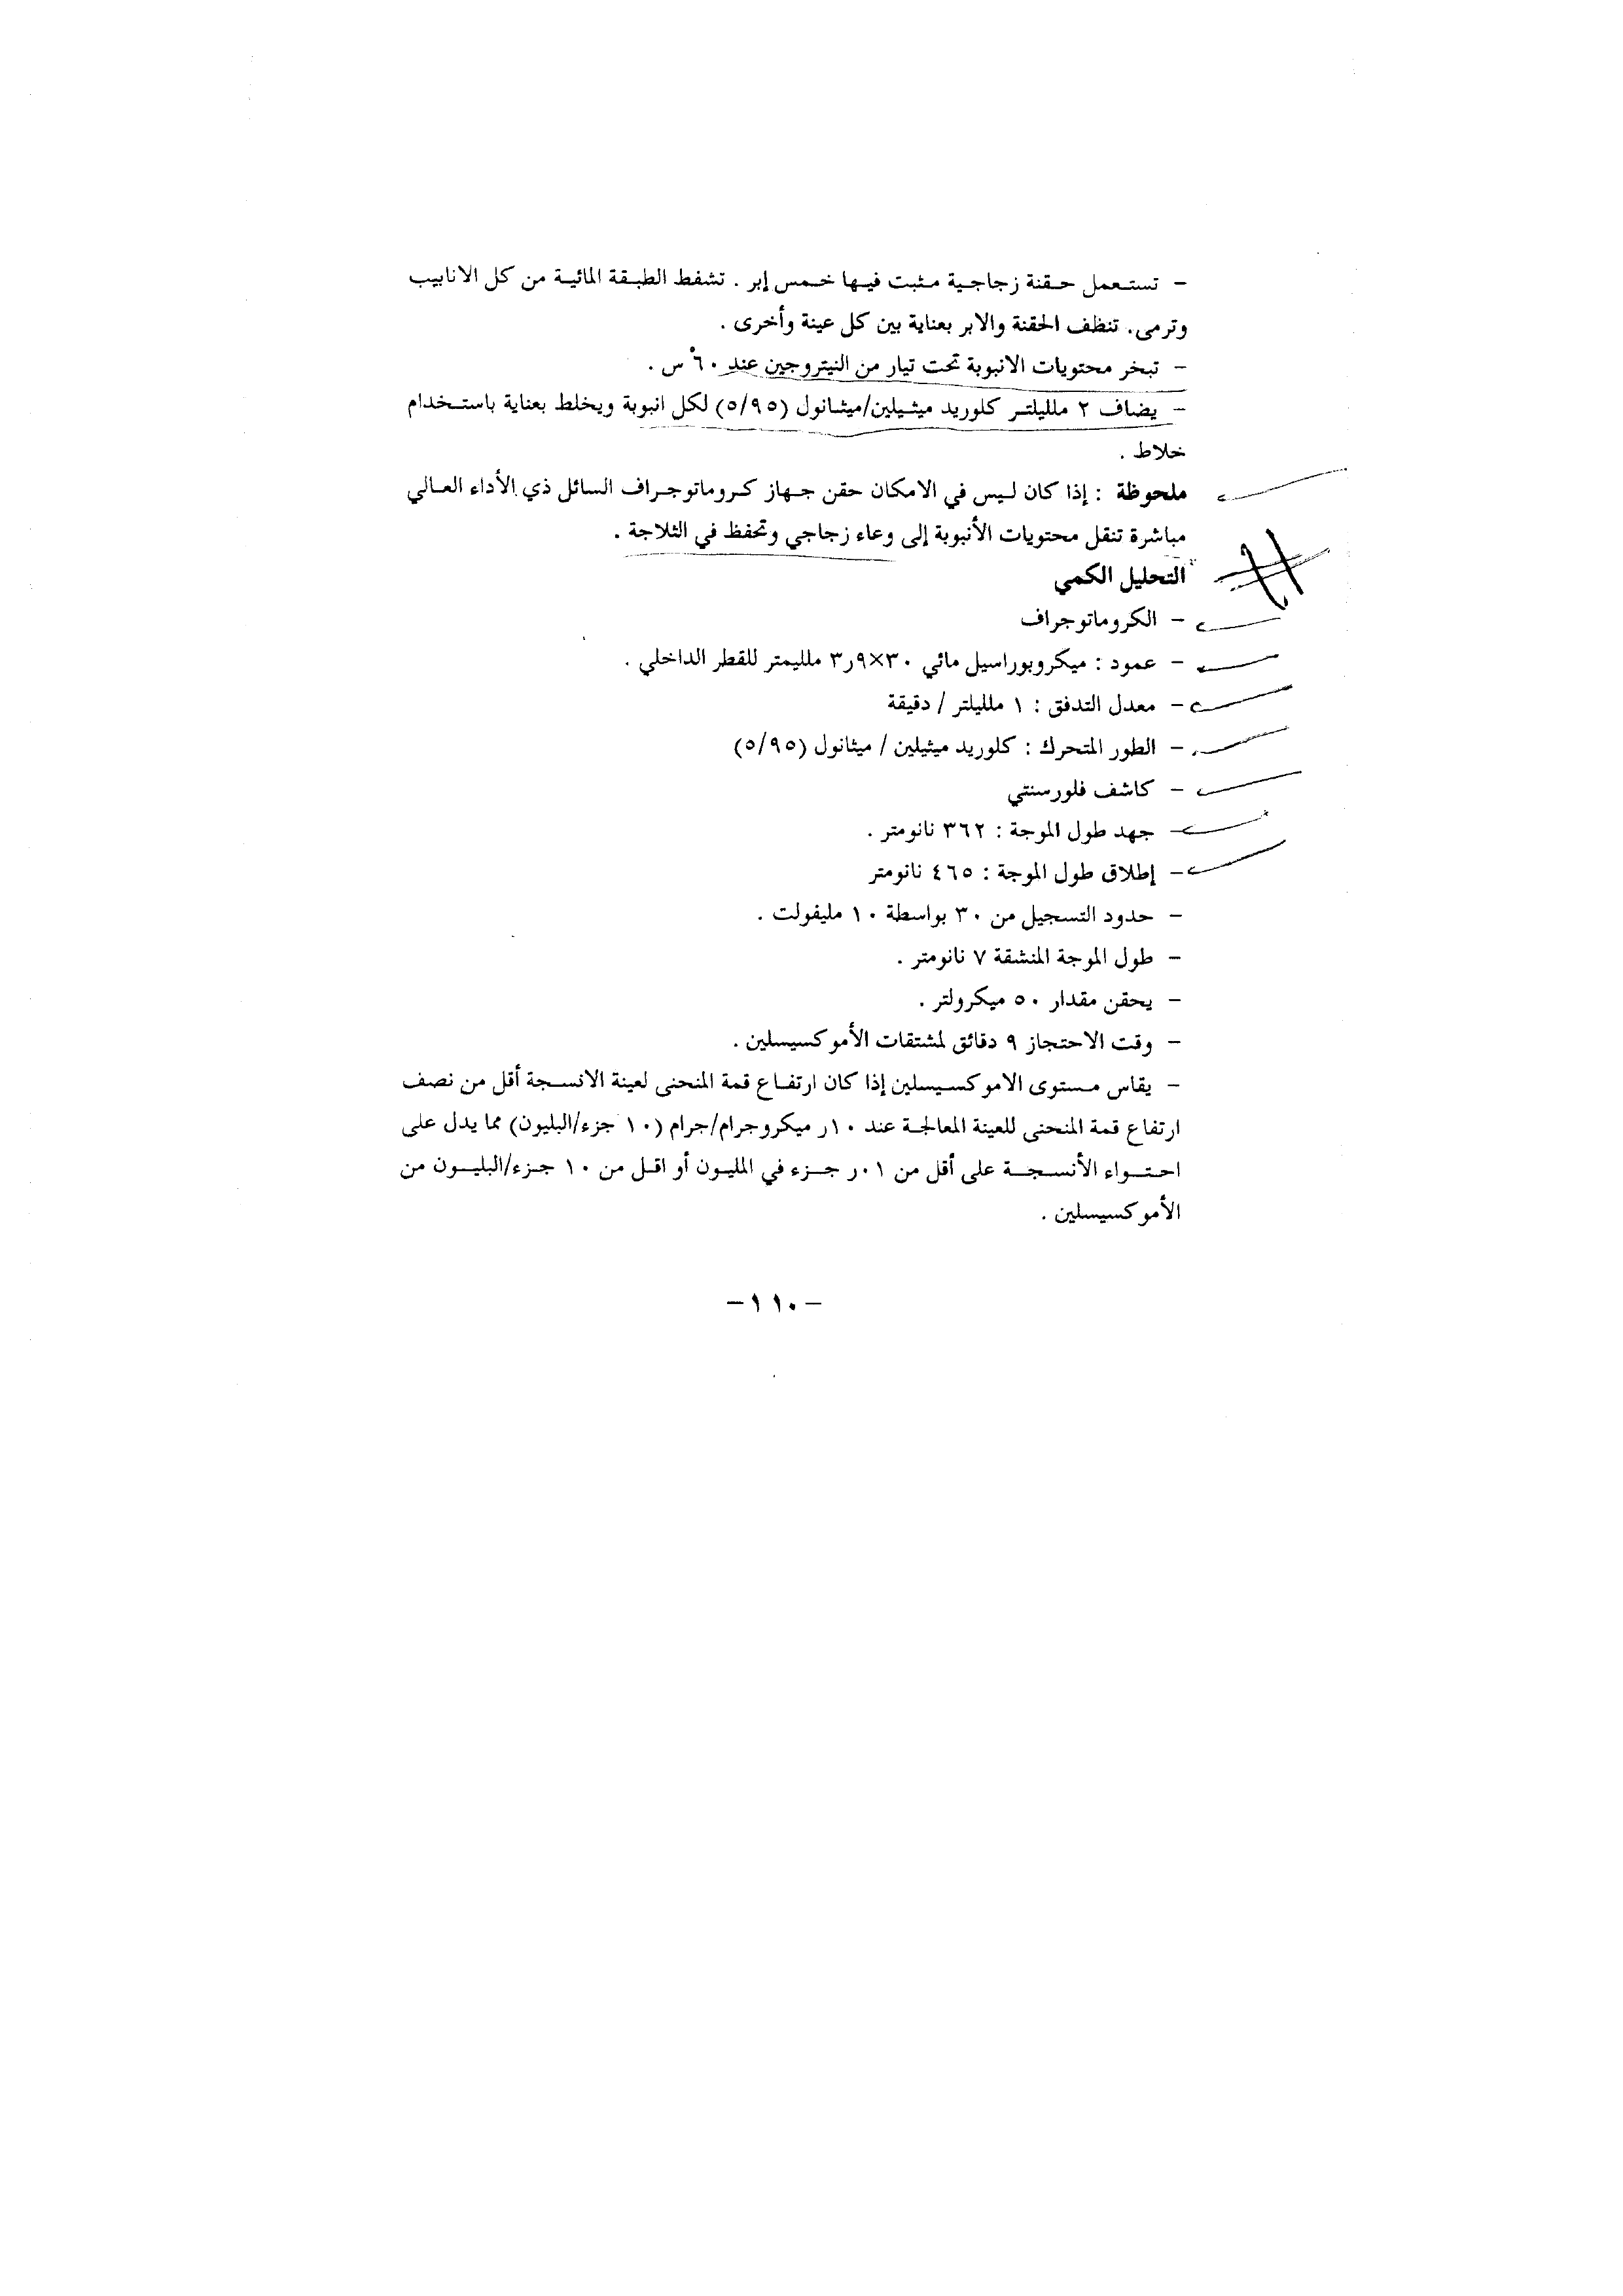 - تستعمل حقنة زجاجية مثبت فيها خمس إبر . تشفط الطبقة المائية من كل الانابيب
وترمى. تنظف الحقنة والابر بعناية بين كل عينة وأخرى .
- تبخر محتويات الانبوبة تحت تيار من النيتروجين عند ٦٠ْ س .
- يضاف ٢ ملليلتر كلوريد ميثيلين/ميثانول (٥/٩٥) لكل انبوبة ويخلط بعناية باستخدام
خلاط .
ملحوظة : إذا كان ليس في الامكان حقن جهاز كروماتوجراف السائل ذي الأداء العالي
مباشرة تنقل محتويات الأنبوبة إلى وعاء زجاجي وتحفظ في الثلاجة .
التحليل الكمي
- الكروماتوجراف
- عمود : ميكروبوراسيل مائي ٣٠×٩ر٣ ملليمتر للقطر الداخلي .
- معدل التدفق : ١ ملليلتر / دقيقة
- الطور المتحرك : كلوريد ميثيلين / ميثانول (٥/٩٥)
- كاشف فلورسنتي
- جهد طول الموجة : ٣٦٢ نانومتر .
- إطلاق طول الموجة : ٤٦٥ نانومتر
- حدود التسجيل من ٣٠ بواسطة ١٠ مليفولت .
- طول الموجة المنشقة ٧ نانومتر .
- يحقن مقدار ٥٠ ميكرولتر .
- وقت الاحتجاز ٩ دقائق لمشتقات الأموكسيسلين .
- يقاس مستوى الاموكسيسلين إذا كان ارتفاع قمة المنحنى لعينة الانسجة أقل من نصف
ارتفاع قمة المنحنى للعينة المعالجة عند ١٠ر ميكروجرام/جرام (١٠ جزء/البليون) مما يدل على
احتواء الأنسجة على أقل من ٠١ر جزء في المليون أو اقل من ١٠ جزء/البليون من
الأموكسيسلين .
-١١٠-